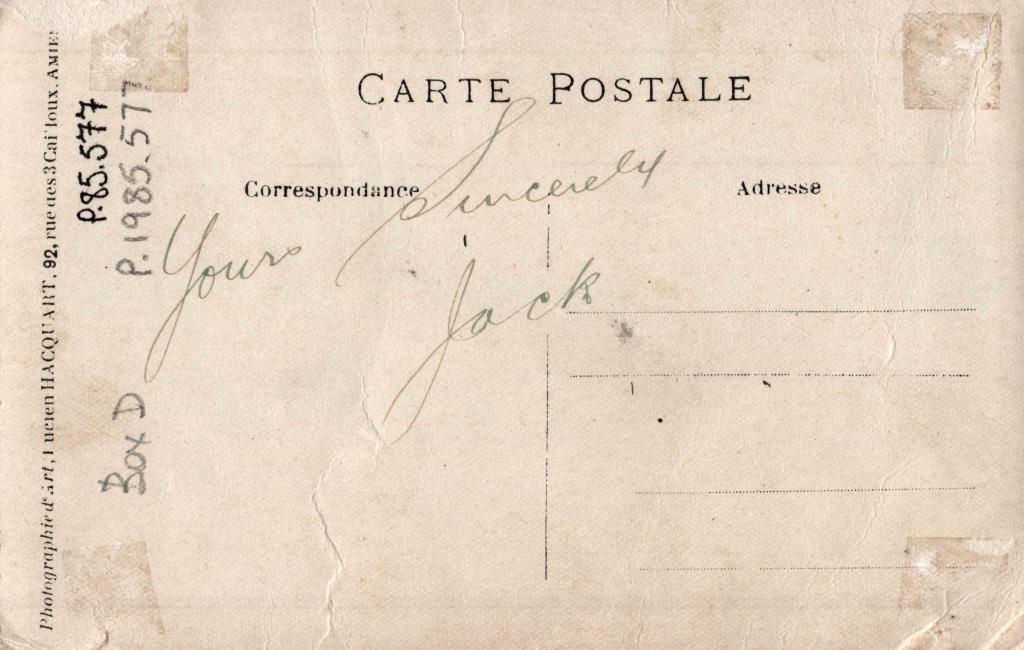 CARTE POSTALE
Correspondance
Adresse
Yours Sincerely
Jack
Photographie d'Art, Lucien HACQUART, 92, rue des 3 Cailloux, AMIE
P.85.577
P.1985.577
Box D